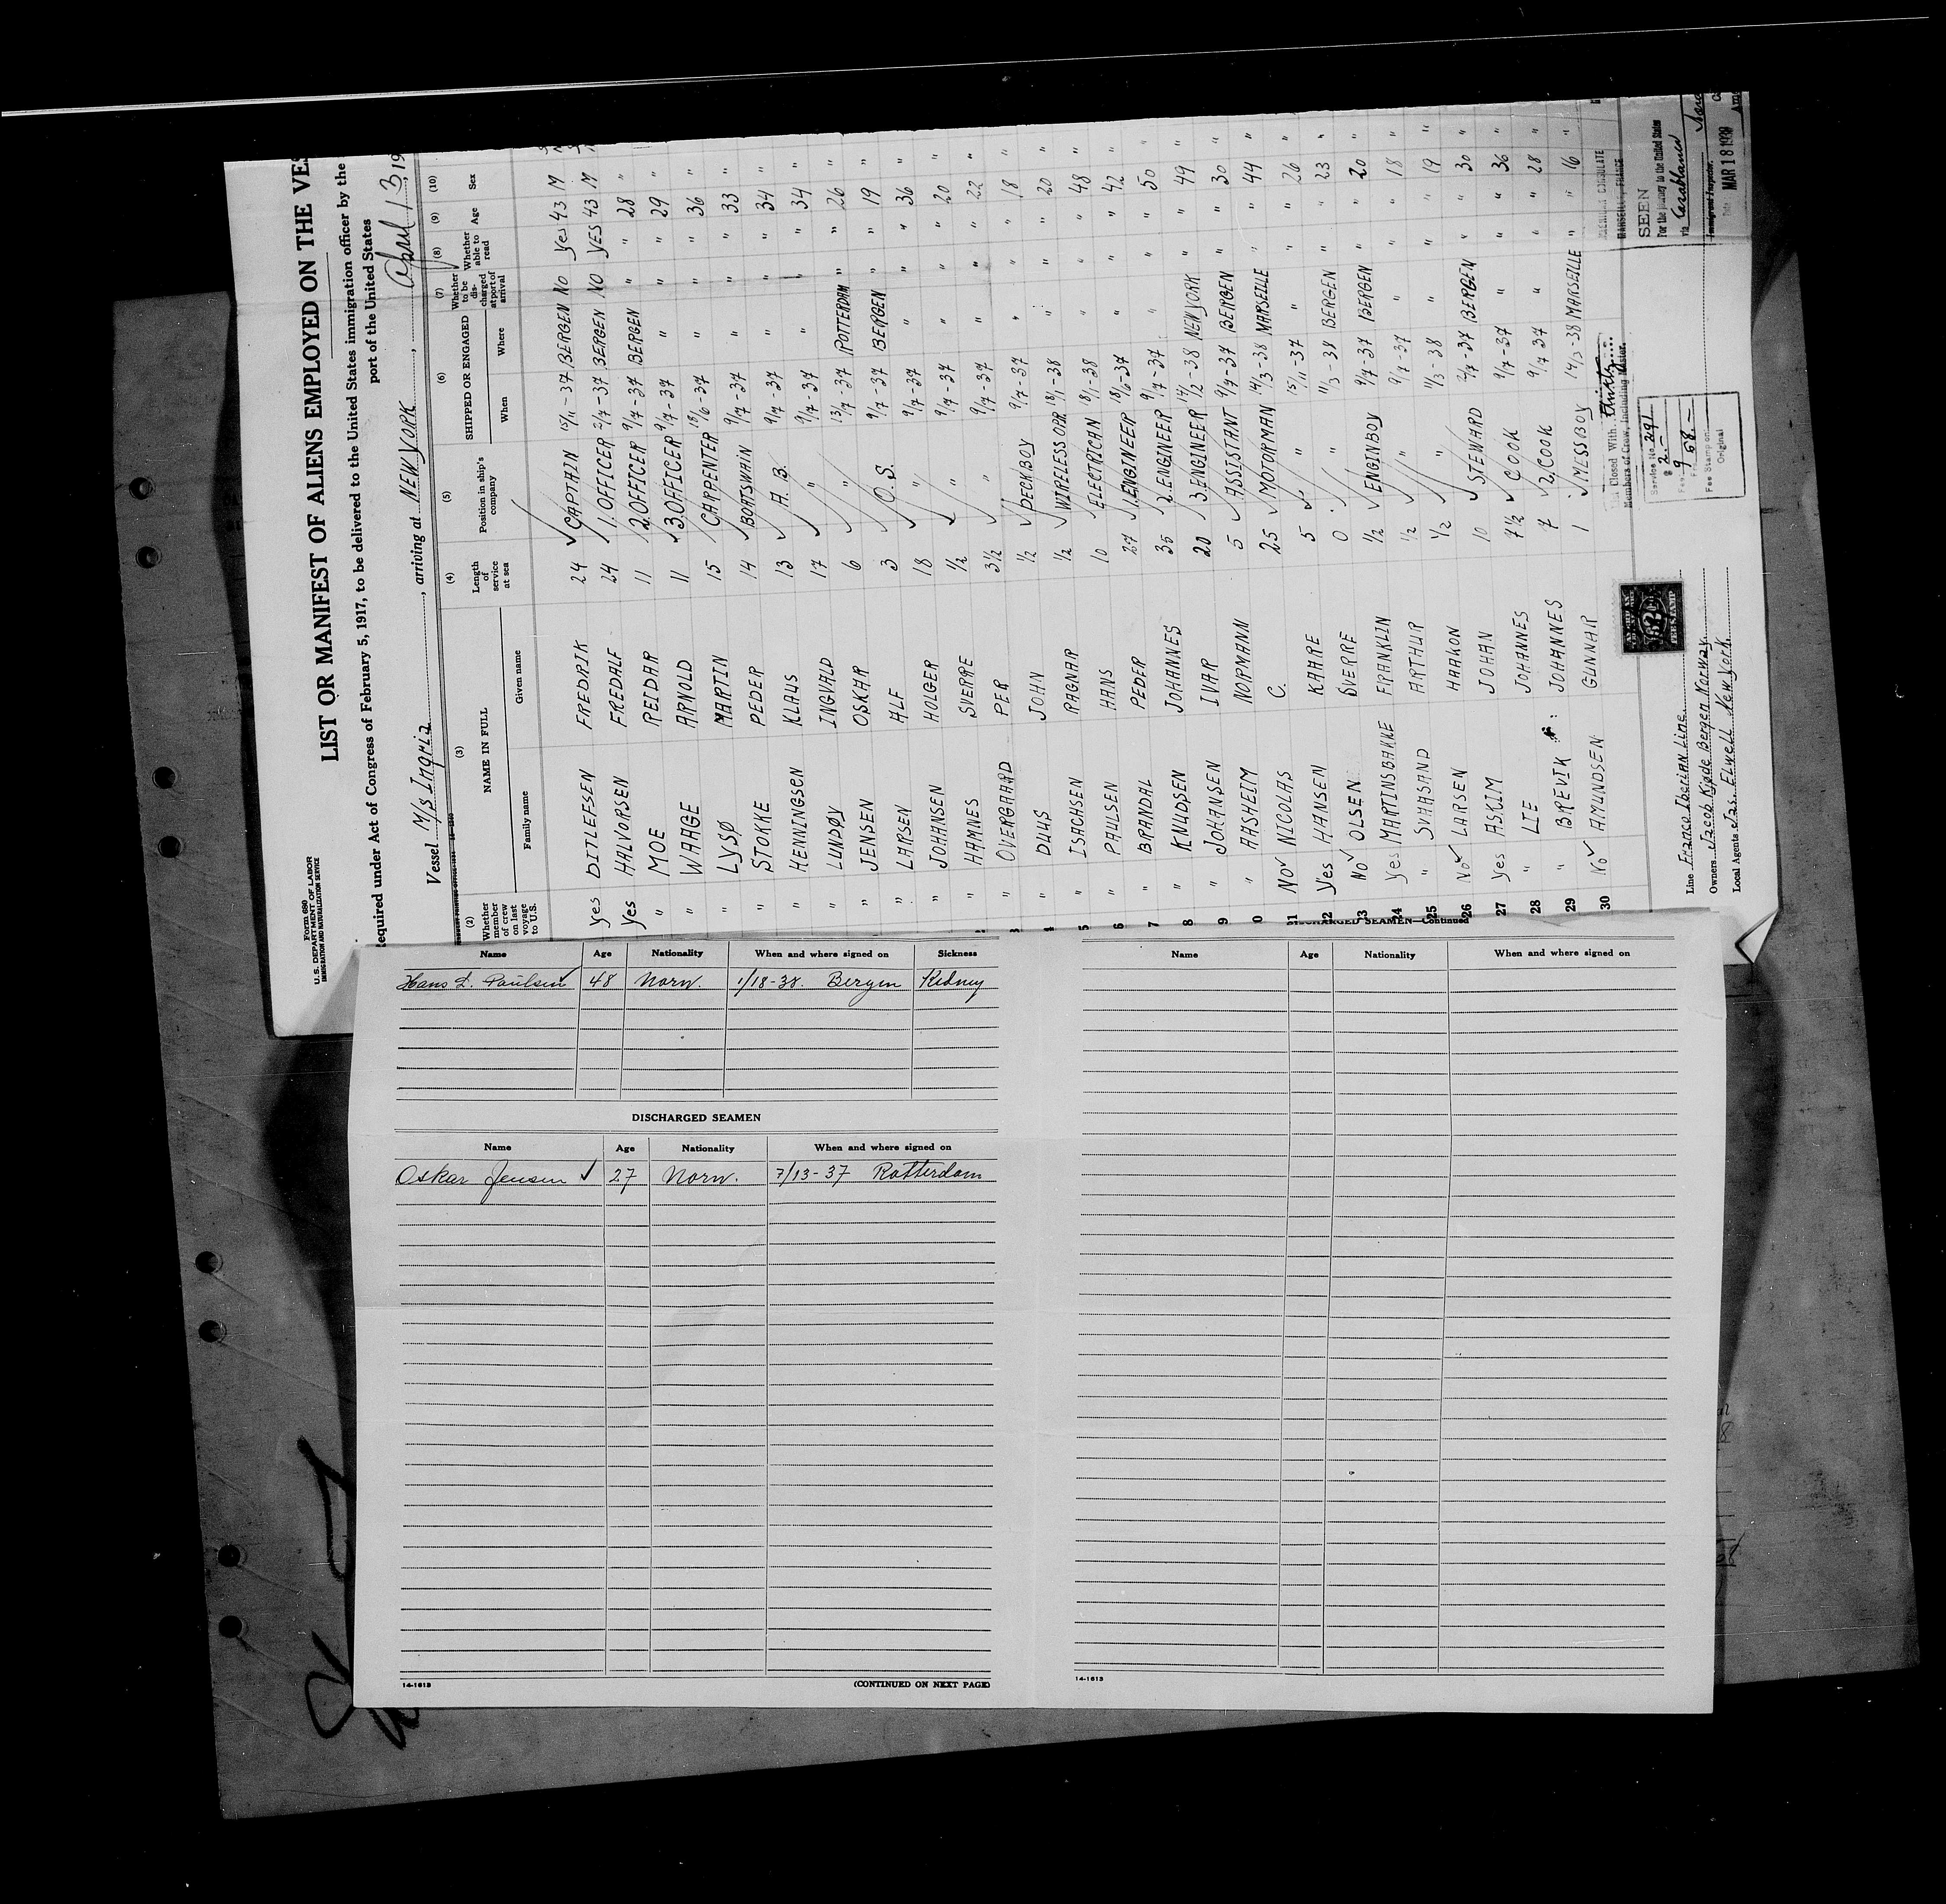 Form 680
U. S. DEPARTMENT OF LABOR
IMMIGRATION AND NATURALIZATION SERVICE
LIST OR MANIFEST OF ALIENS EMPLOYED ON THE VES
equired under Act of Congress of February 5, 1917, to be delivered to the United States immigration officer by the
port of the United States
Vessel M/s Ingria, arriving at NEW YORK, April 13, 19
(2) (3) (4) (5) (6) (7) (8) (9) (10)
Whether member of crew on last voyage to U.S.
NAME IN FULL
Family name Given name
Length of service at sea
Position in ship's company
SHIPPED OR ENGAGED
When Where
Whether to be discharged at port of arrival
Whether able to read
Age
Sex
Yes DITLEFSEN FREDRIK 24 CAPTAIN 15/11-37 BERGEN No Yes 43 M
Yes HALVORSEN FREDALF 24 1. OFFICER 2/7-37 BERGEN NO YES 43 M
" MOE REIDAR 11 2. OFFICER 9/7-37 BERGEN " " 28 "
" WAAGE ARNOLD 11 3. OFFICER 9/7-37 " " " 29 "
" LYSØ MARTIN 15 CARPENTER 18/6-37 " " " 36 "
" STOKKE PEDER 14 BOATSWAIN 9/7-37 " " " 33 "
" HENNINGSEN KLAUS 13 A. B. 9/7-37 " " " 34 "
" LUNDØY INGVALD 17 " 9/7-37 " " " 34 "
" JENSEN OSKAR 6 " 13/7-37 ROTTERDAM " " 26 "
" LARSEN ALF 3 O. S. 9/7-37 BERGEN " " 19 "
" JOHANSEN HOLGER 18 " 9/7-37 " " " 36 "
" HAMNES SVERRE 1/2 " 9/7-37 " " " 20 "
" OVERGAARD PER 3 1/2 " 9/7-37 " " " 22 "
" DUUS JOHN 1/2 DECKBOY 9/7-37 " " " 18 "
" ISACHSEN RAGNAR 1/2 WIRELESS OPR. 18/1-38 " " " 20 "
" PAULSEN HANS 10 ELECTRICAN 18/1-38 " " " 48 "
" BRANDAL PEDER 27 1. ENGINEER 18/6-37 " " " 42 "
" KNUDSEN JOHANNES 35 2. ENGINEER 9/7-37 " " " 50 "
" JOHANSEN IVAR 20 3. ENGINEER 14/2-38 NEW YORK " " 49 "
" AASHEIM NORMANN 5 ASSISTANT 9/7-37 BERGEN " " 30 "
No NICOLAS C. 25 MOTORMAN 14/3-38 MARSEILLE " " 44 "
Yes HANSEN KAARE 5 " 15/11-37 " " " 26 "
No OLSEN SVERRE 0 " 11/3-38 BERGEN " " 23 "
Yes MARTINSBAKKE FRANKLIN 1/2 ENGINBOY 9/7-37 BERGEN " " 20 "
" SVAASAND ARTHUR 1/2 " 9/7-37 " " " 18 "
No LARSEN HAAKON 1/2 " 11/3-38 " " " 19 "
Yes ASKIM JOHAN 10 STEWARD 2/7-37 BERGEN " " 30 "
" LIE JOHANNES 7 1/2 COOK 9/7-37 " " " 36 "
" BREVIK JOHANNES 7 2. COOK 9/7-37 " " " 28 "
No AMUNDSEN GUNNAR 1 MESSBOY 14/3-38 MARSEILLE " " 16 "
21
22
23
24
25
26
27
28
29
30
List Closed With Thirty
Members of Crew, Including Master.
Service No. 291
Fee Stamp on Original
AMERICAN CONSULATE
MARSEILLE, FRANCE
SEEN
For the journey to the United States
via Casablanca
MAR 18 1938
$2
FEE STAMP
Line Franco Iberian Line
Owners Jacob Kjøde Bergen Norway
Local Agents Jas. Elwell New York
Name Age Nationality When and where signed on Sickness
Hans L. Paulsen 48 Norw. 1/18-38. Bergen Kidney
DISCHARGED SEAMEN
Name Age Nationality When and where signed on
Oskar Jensen 27 Norw. 7/13-37 Rotterdam
14-1613
(CONTINUED ON NEXT PAGE)
DISCHARGED SEAMEN—Continued
Name Age Nationality When and where signed on
14-1613